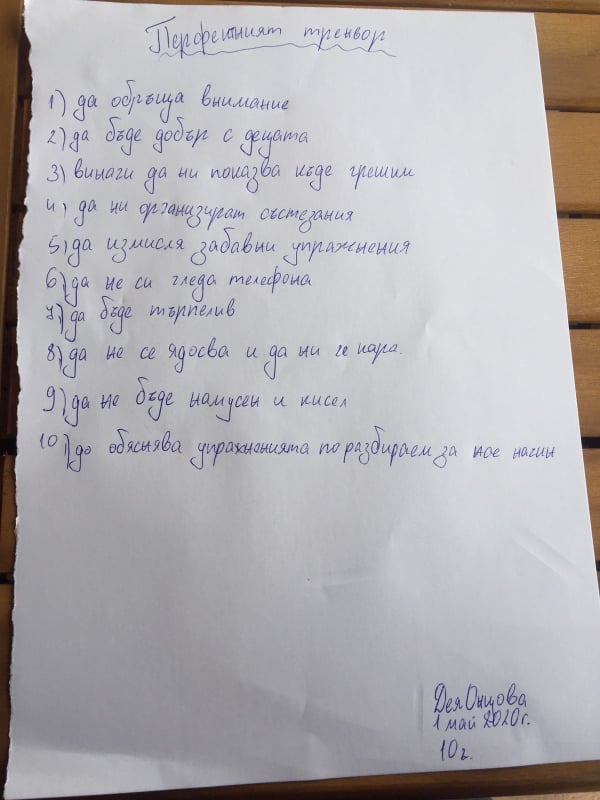 Перфектният треньор
1) да обръща внимание
2) да бъде добър с децата
3) винаги да ни показва къде грешим
4) да ни организират състезания
5) да измисля забавни упражнения
6) да не си гледа телефона
7) да бъде търпелив
8) да не се ядосва и да ни се кара.
9) да не бъде намусен и кисел
10) да обяснява упражненията по разбираем за нас начин
Дея
1 май 2020г.
10г.